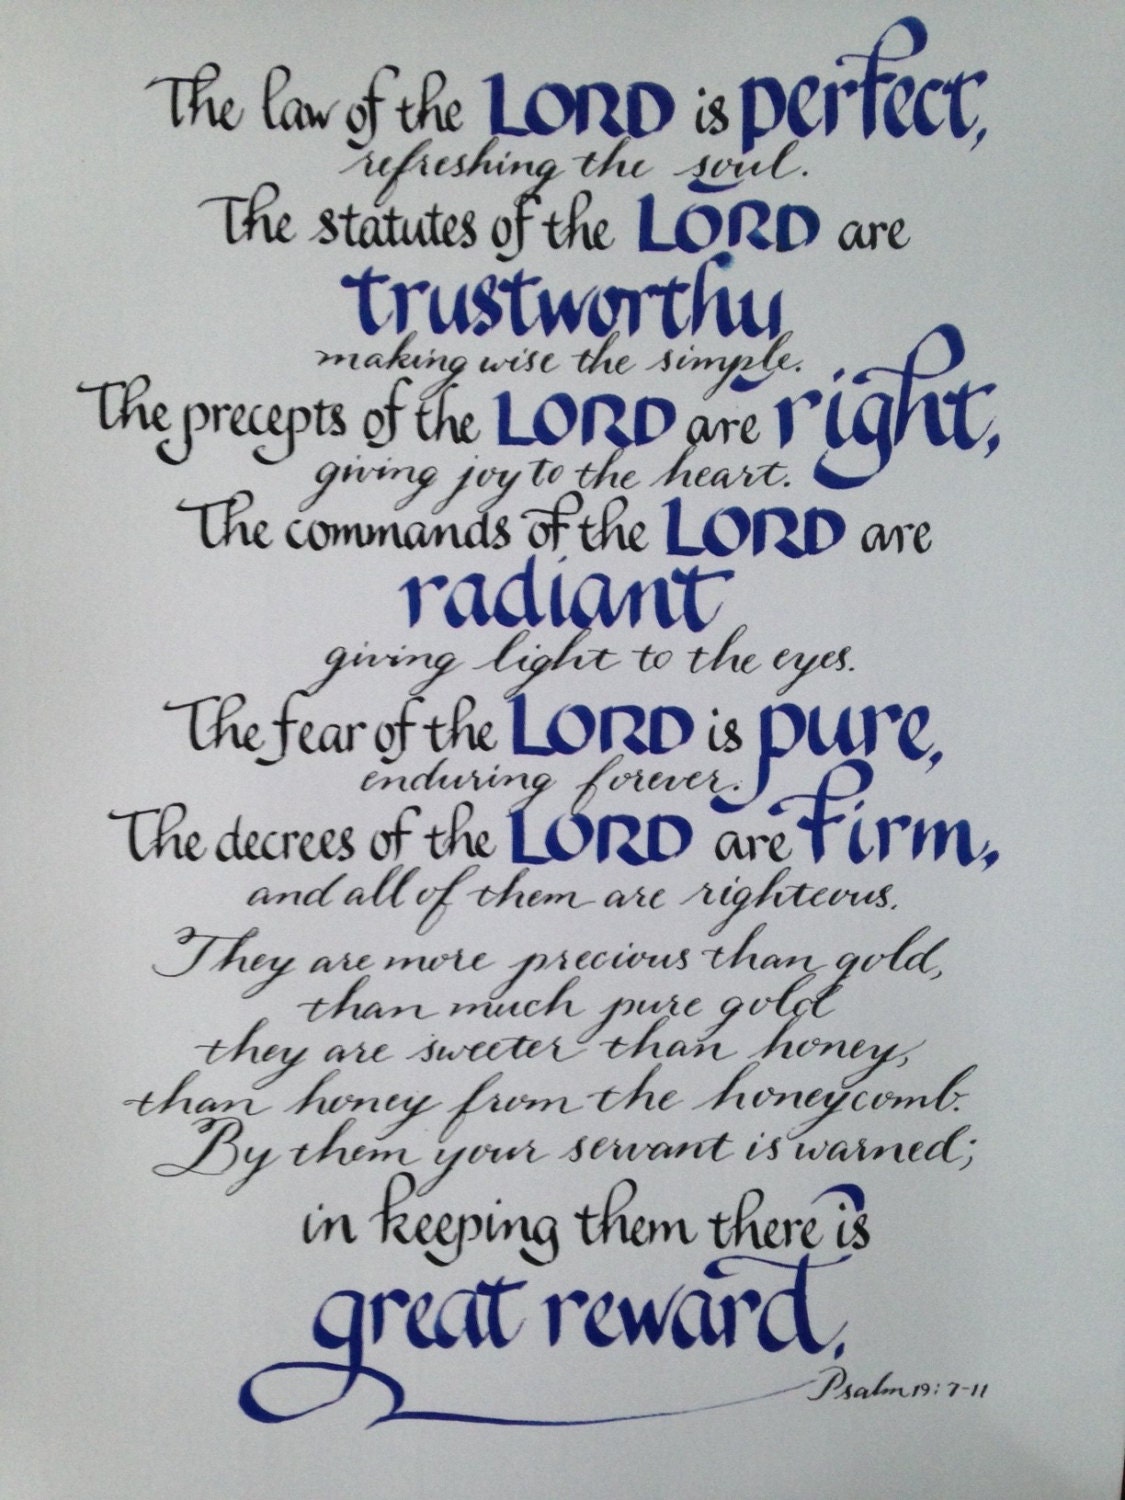 The law of the LORD is perfect,
refreshing the soul.
The statutes of the LORD are
trustworthy
making wise the simple.
The precepts of the LORD are right,
giving joy to the heart.
The commands of the LORD are
radiant
giving light to the eyes.
The fear of the LORD is pure,
enduring forever.
The decrees of the LORD are firm,
and all of them are righteous.
They are more precious than gold,
than much pure gold
they are sweeter than honey,
than honey from the honeycomb.
By them your servant is warned;
in keeping them there is
great reward.
Psalm 19:7-11